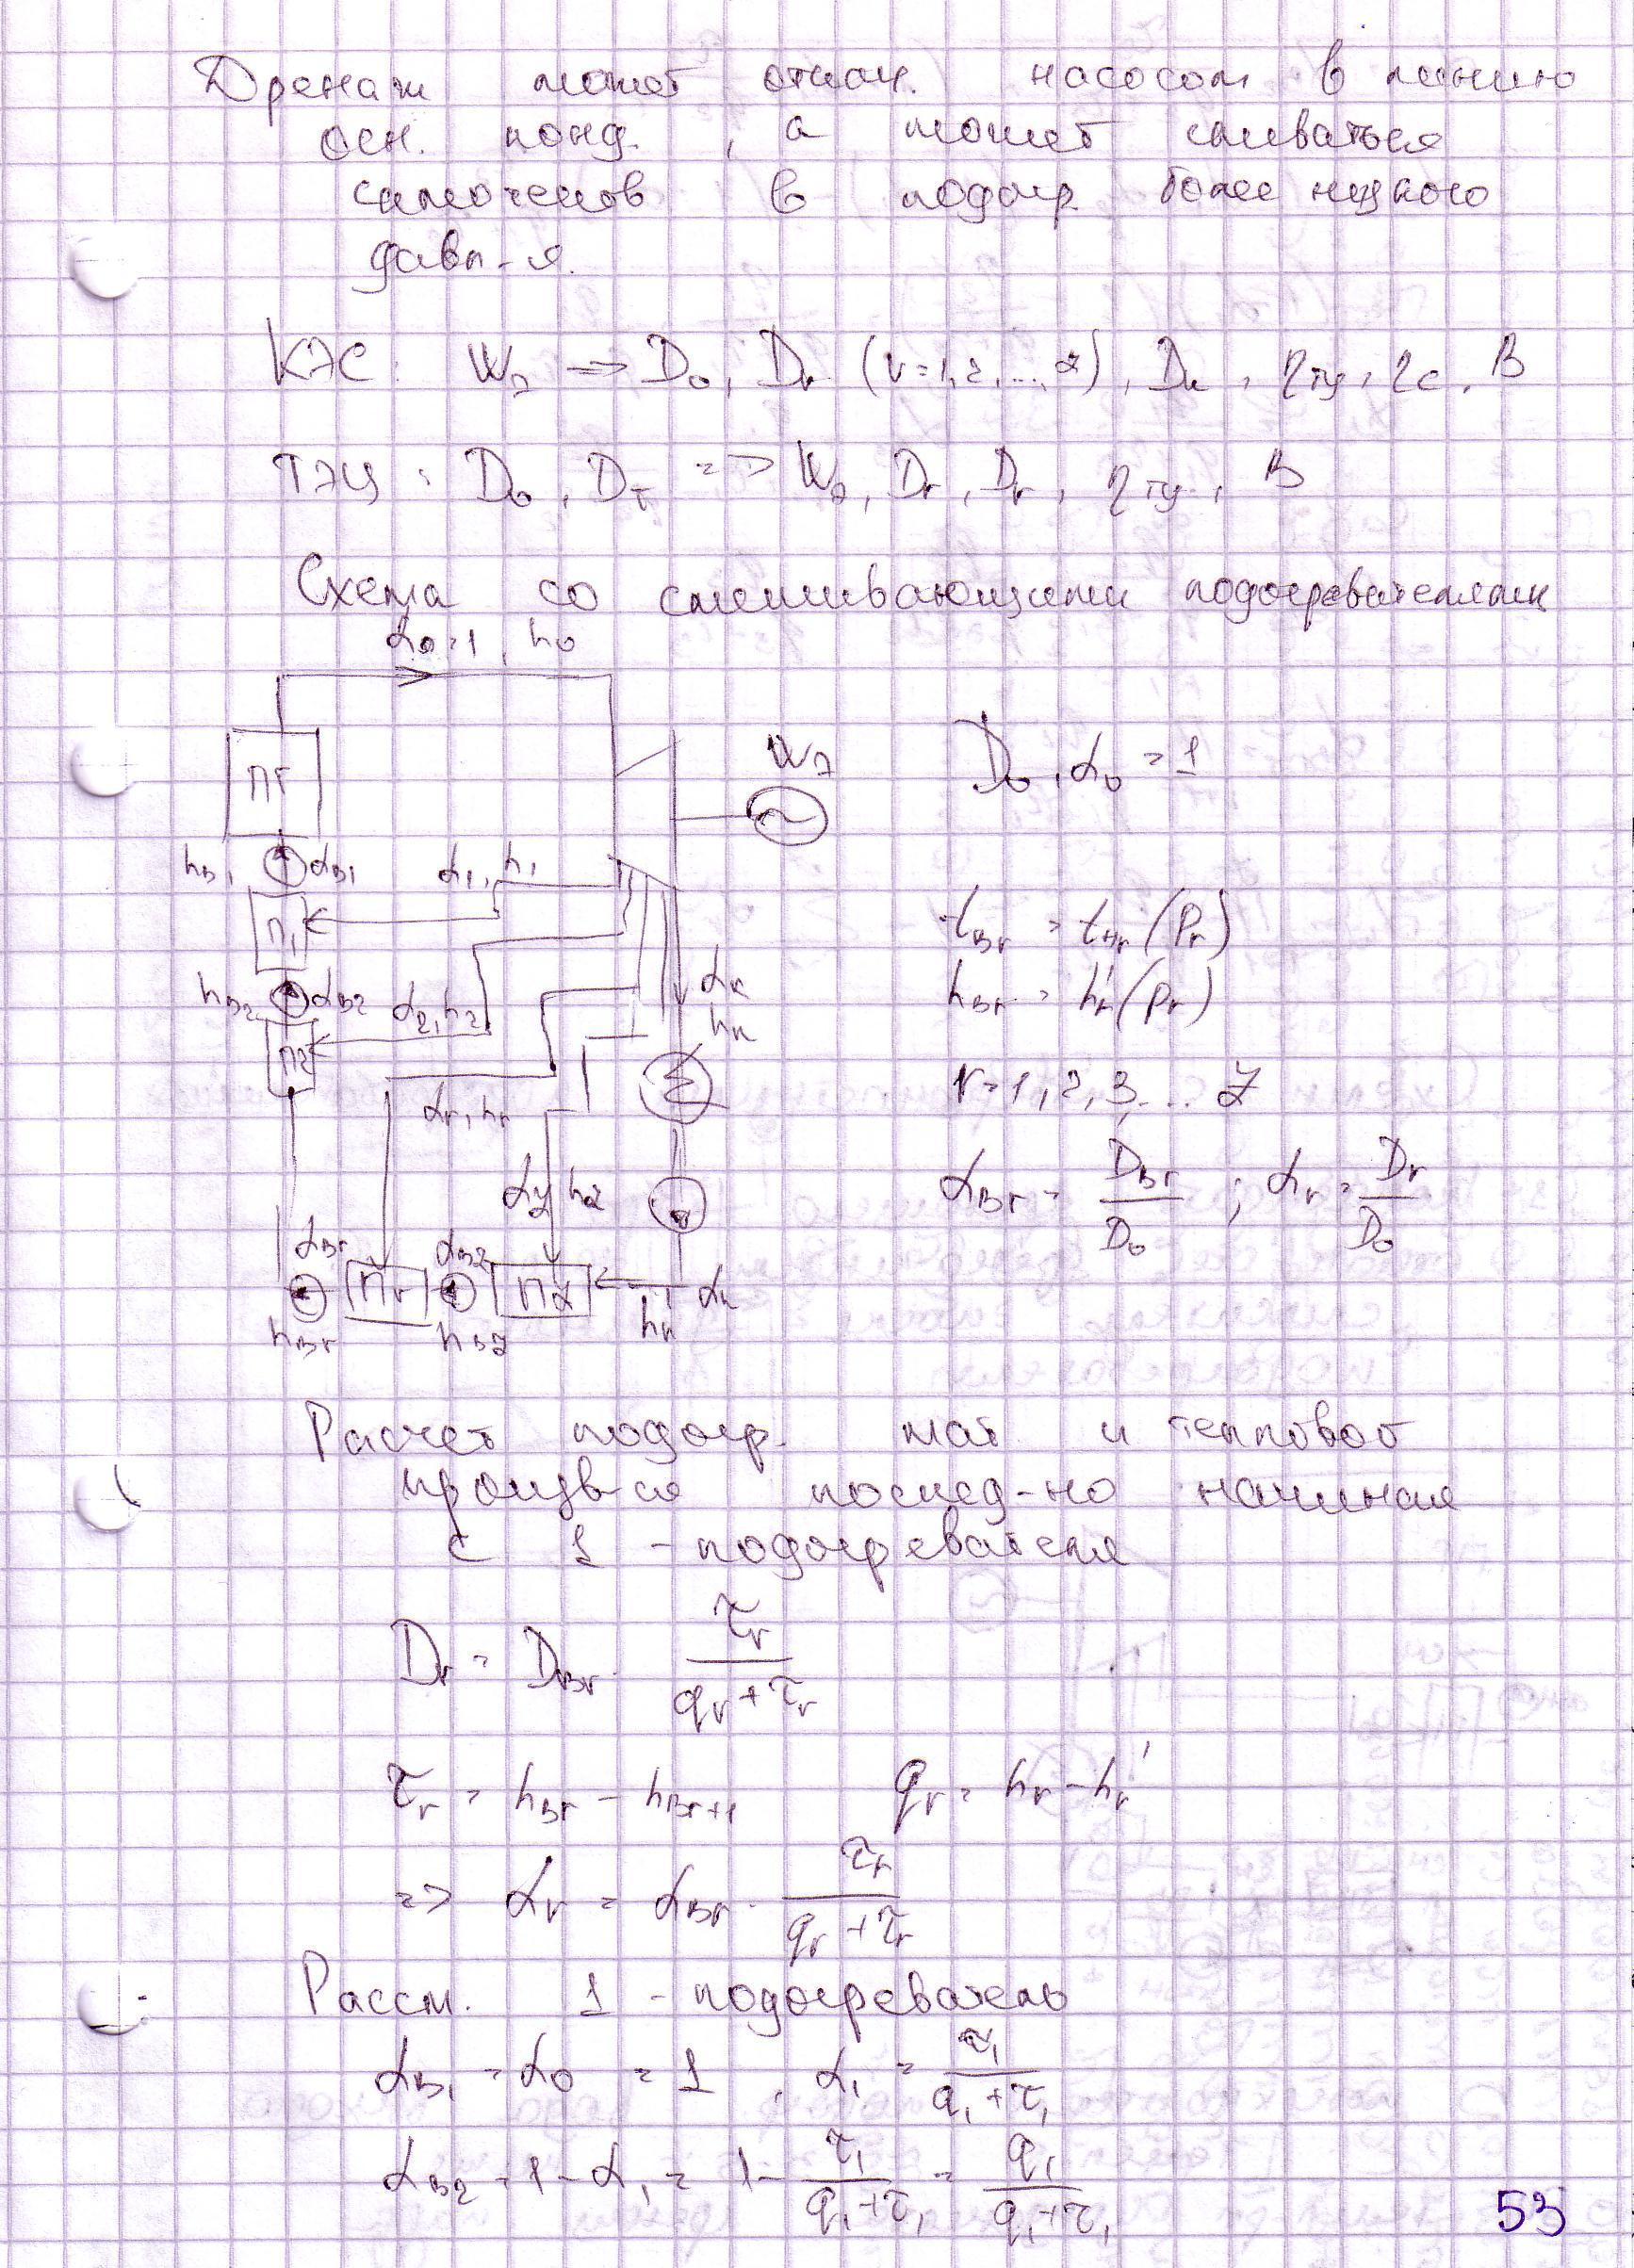 Дренаж может откач. насосом в линию
осн. конд., а может сливаться
самотеков в подогр более низкого
давл-я.
КЭС: Wэ => D₀, Dr (r=1,2,...,z), Dк, ηту, ηс, B
ТЭЦ: D₀, Dт => Wэ, Dr, Dr, ηту, B
Схема со смешивающими подогревателями
α₀=1, h₀
ПГ
Wэ
D₀, α₀ = 1
hв₁ αв₁ α₁, h₁
П₁
tвr = tнr(Pr)
hв₂ αв₂ α₂, h₂ αк
hк
hвr = h'r(Pr)
П₂
αr, hr
r=1,2,3,... Z
αz hz
αвr = Dвr/D₀ ; αr = Dr/D₀
αвr αвz
Пr Пz αк
hвr hвz h'к
Расчет подогр. мат и тепловой
произв-ся послед-но начиная
с 1 - подогревателя
Dr = Dвr · τr/(qr + τr)
τr = hвr - hвr+1 qr = hr - hr'
=> αr = αвr · τr/(qr + τr)
Рассм. 1 - подогреватель
αв₁ = α₀ = 1, α₁ = τ₁/(q₁ + τ₁)
αв₂ = 1 - α₁ = 1 - τ₁/(q₁ + τ₁) = q₁/(q₁ + τ₁)
53